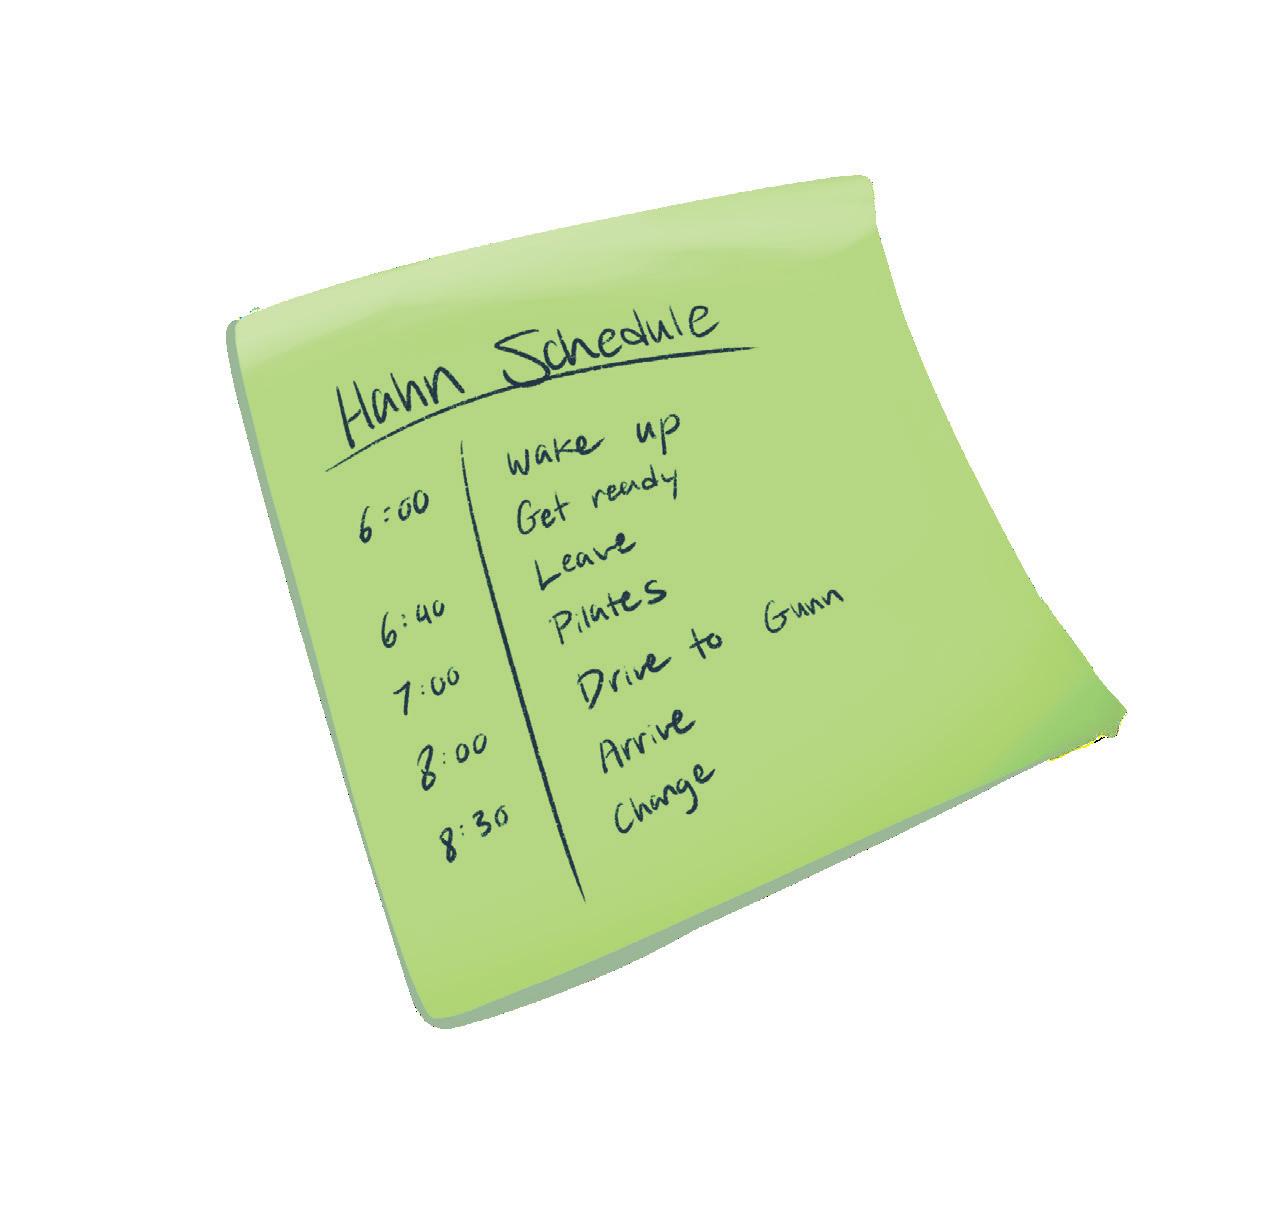 Hahn Schedule
wake up
6:00 Get ready
Leave
6:40 Pilates
7:00 Drive to Gunn
8:00 Arrive
8:30 Change